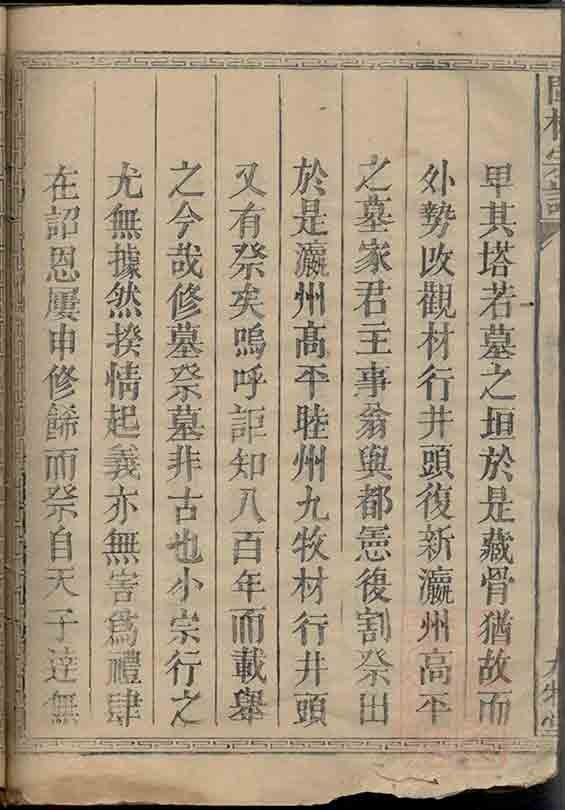 甲其塔若墓之垣於是藏骨猶故而
外勢改觀材行井頭復新瀛州高平
之墓家君主事翁與都憲復割祭田
於是瀛州高平睦州九牧材行井頭
又有祭矣嗚呼詎知八百年而載舉
之今哉修墓祭墓非古也小宗行之
尤無據然揆情起義亦無害為禮肆
在詔恩屢申修餙而祭自天子達無